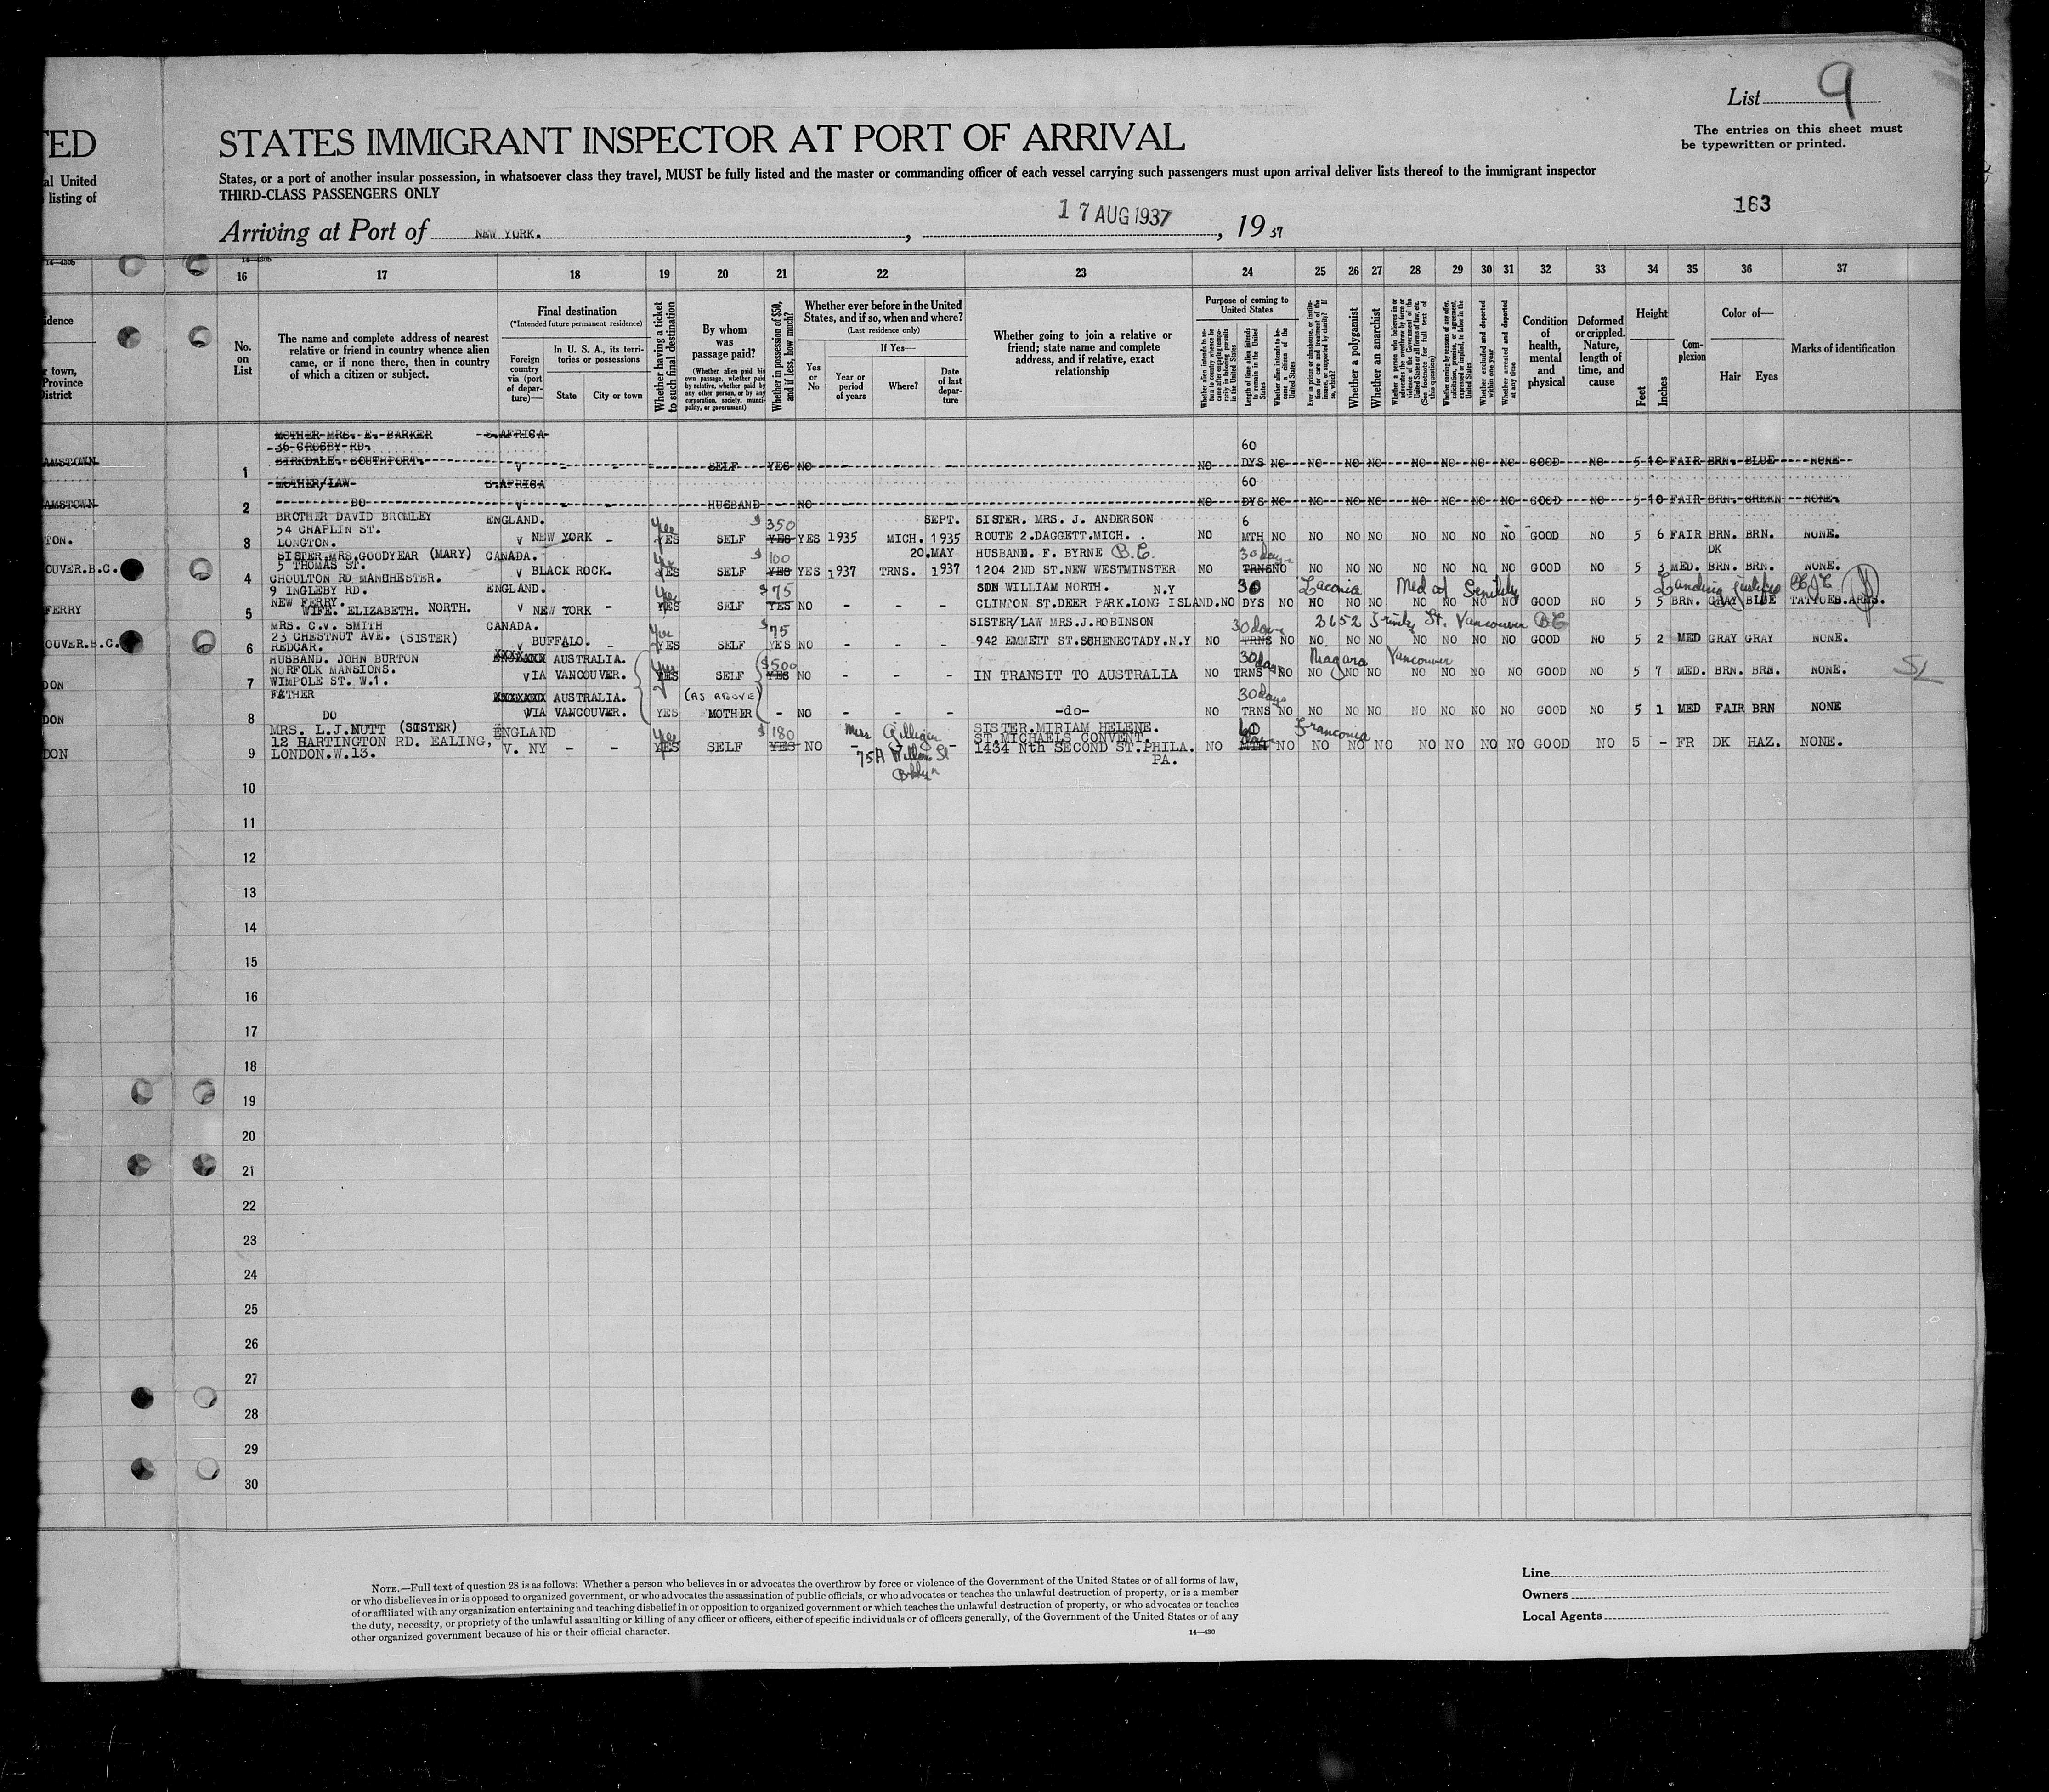 List 9
The entries on this sheet must
be typewritten or printed.
TED
STATES IMMIGRANT INSPECTOR AT PORT OF ARRIVAL
al United
listing of
States, or a port of another insular possession, in whatsoever class they travel, MUST be fully listed and the master or commanding officer of each vessel carrying such passengers must upon arrival deliver lists thereof to the immigrant inspector
THIRD-CLASS PASSENGERS ONLY
163
Arriving at Port of NEW YORK. , 17 AUG 1937 , 19 37
14—430b
14—430b
16 17 18 19 20 21 22 23 24 25 26 27 28 29 30 31 32 33 34 35 36 37
idence
r town,
Province
District
No.
on
List
The name and complete address of nearest
relative or friend in country whence alien
came, or if none there, then in country
of which a citizen or subject.
Final destination
(*Intended future permanent residence)
Foreign
country
via (port
of depar-
ture)—
In U. S. A., its terri-
tories or possessions
State
City or town
Whether having a ticket
to such final destination
By whom
was
passage paid?
(Whether alien paid his
own passage, whether paid
by relative, whether paid by
any other person, or by any
corporation, society, munici-
pality, or government)
Whether in possession of $50,
and if less, how much?
Whether ever before in the United
States, and if so, when and where?
(Last residence only)
Yes
or
No
If Yes—
Year or
period
of years
Where?
Date
of last
depar-
ture
Whether going to join a relative or
friend; state name and complete
address, and if relative, exact
relationship
Purpose of coming to
United States
Length of time alien intends
to remain in the United
States
Whether alien intends to be-
come a citizen of the
United States
Whether a polygamist
Whether an anarchist
(See footnote for full text of
this question)
Whether excluded and deported
within one year
Whether arrested and deported
at any time
Condition
of
health,
mental
and
physical
Deformed
or crippled.
Nature,
length of
time, and
cause
Height
Feet
Inches
Com-
plexion
Color of—
Hair
Eyes
Marks of identification
MOTHER MRS. E. BARKER S.AFRICA
36 CROSBY RD. 60
AMSTOWN 1 BIRKDALE. SOUTHPORT. V - - SELF YES NO - - - NO DYS NO NO NO NO NO NO NO NO GOOD NO 5 10 FAIR BRN. BLUE NONE
MOTHER/LAW S.AFRICA 60
AMSTOWN 2 DO V - - HUSBAND - NO - - - NO DYS NO NO NO NO NO NO NO NO GOOD NO 5 10 FAIR BRN. GREEN NONE.
BROTHER DAVID BROMLEY ENGLAND. $350 SEPT. SISTER. MRS. J. ANDERSON 6
54 CHAPLIN ST. yes
TON. 3 LONGTON. V NEW YORK - YES SELF YES YES 1935 MICH. 1935 ROUTE 2.DAGGETT.MICH. . NO MTH NO NO NO NO NO NO NO NO GOOD NO 5 6 FAIR BRN. BRN. NONE.
SISTER.MRS.GOODYEAR (MARY) CANADA. $100 20.MAY HUSBAND. F. BYRNE B.C. 30 days DK
5 THOMAS ST.
OUVER.B.C. 4 CHOULTON RD MANBHESTER. V BLACK ROCK. YES SELF YES YES 1937 TRNS. 1937 1204 2ND ST.NEW WESTMINSTER NO TRNS NO NO NO NO NO NO NO NO GOOD NO 5 3 MED. BRN. BRN. NONE.
9 INGLEBY RD. ENGLAND. yes $75 SON WILLIAM NORTH. N.Y 30 Laconia Med of Senility Landing
NEW FERRY.
FERRY 5 WIFE. ELIZABETH. NORTH. V NEW YORK - YES SELF YES NO - - - CLINTON ST.DEER PARK.LONG ISLAND. NO DYS NO NO NO NO NO NO NO NO GOOD NO 5 5 BRN. GRAY BLUE TATTOED.ARMS.
MRS. C.V. SMITH CANADA. $75 SISTER/LAW MRS.J.ROBINSON 30 days 2652 Trinity St. Vancouver BC
23 CHESTNUT AVE. (SISTER)
OUVER.B.C. 6 REDCAR. V BUFFALO. YES SELF YES NO - - - 942 EMMETT ST.SCHENECTADY.N.Y NO TRNS NO NO NO NO NO NO NO NO GOOD NO 5 2 MED GRAY GRAY NONE.
HUSBAND. JOHN BURTON AUSTRALIA. $500 30 days Niagara Vancouver
NORFOLK MANSIONS.
DON 7 WIMPOLE ST. W.1. VIA VANCOUVER. YES SELF YES NO - - - IN TRANSIT TO AUSTRALIA NO TRNS NO NO NO NO NO NO NO NO GOOD NO 5 7 MED. BRN. BRN. NONE. SL
FATHER AUSTRALIA. (AS ABOVE) 30 days
DON 8 DO VIA VANCOUVER. YES MOTHER - NO - - - -do- NO TRNS NO NO NO NO NO NO NO NO GOOD NO 5 1 MED FAIR BRN NONE
MRS. L.J.NUTT (SISTER) ENGLAND yes $180 Mrs Gilligan SISTER.MIRIAM HELENE. 60 Franconia
12 HARTINGTON RD. EALING, ST.MICHAELS CONVENT.
DON 9 LONDON.W.13. V. NY - - YES SELF YES NO - - 1434 Nth SECOND ST.PHILA. NO MTH NO NO NO NO NO NO NO NO GOOD NO 5 - FR DK HAZ. NONE.
PA.
10
11
12
13
14
15
16
17
18
19
20
21
22
23
24
25
26
27
28
29
30
NOTE.—Full text of question 28 is as follows: Whether a person who believes in or advocates the overthrow by force or violence of the Government of the United States or of all forms of law,
or who disbelieves in or is opposed to organized government, or who advocates the assassination of public officials, or who advocates or teaches the unlawful destruction of property, or is a member
of or affiliated with any organization entertaining and teaching disbelief in or opposition to organized government or which teaches the unlawful destruction of property, or who advocates or teaches
the duty, necessity, or propriety of the unlawful assaulting or killing of any officer or officers, either of specific individuals or of officers generally, of the Government of the United States or of any
other organized government because of his or their official character.
14—430
Line
Owners
Local Agents